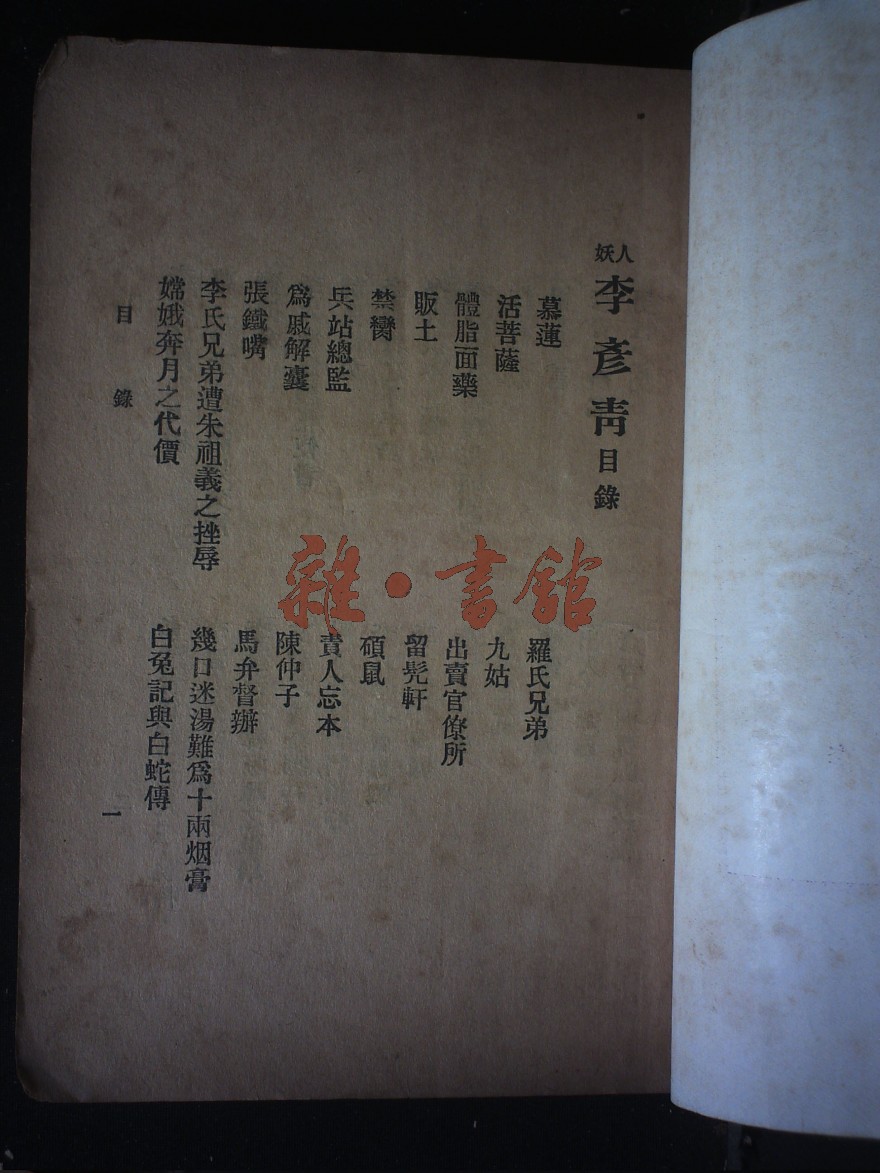 人妖
李彥青目錄
慕蓮
羅氏兄弟
活菩薩
九姑
體脂面藥
出賣官僚所
販土
留髡軒
禁臠
碩鼠
兵站總監
貴人忘本
為戚解囊
陳仲子
張鐵嘴
馬弁督辦
李氏兄弟遭朱祖義之挫辱
幾口迷湯難為十兩烟膏
嫦娥奔月之代價
白兔記與白蛇傳
目錄
一
雜·書館